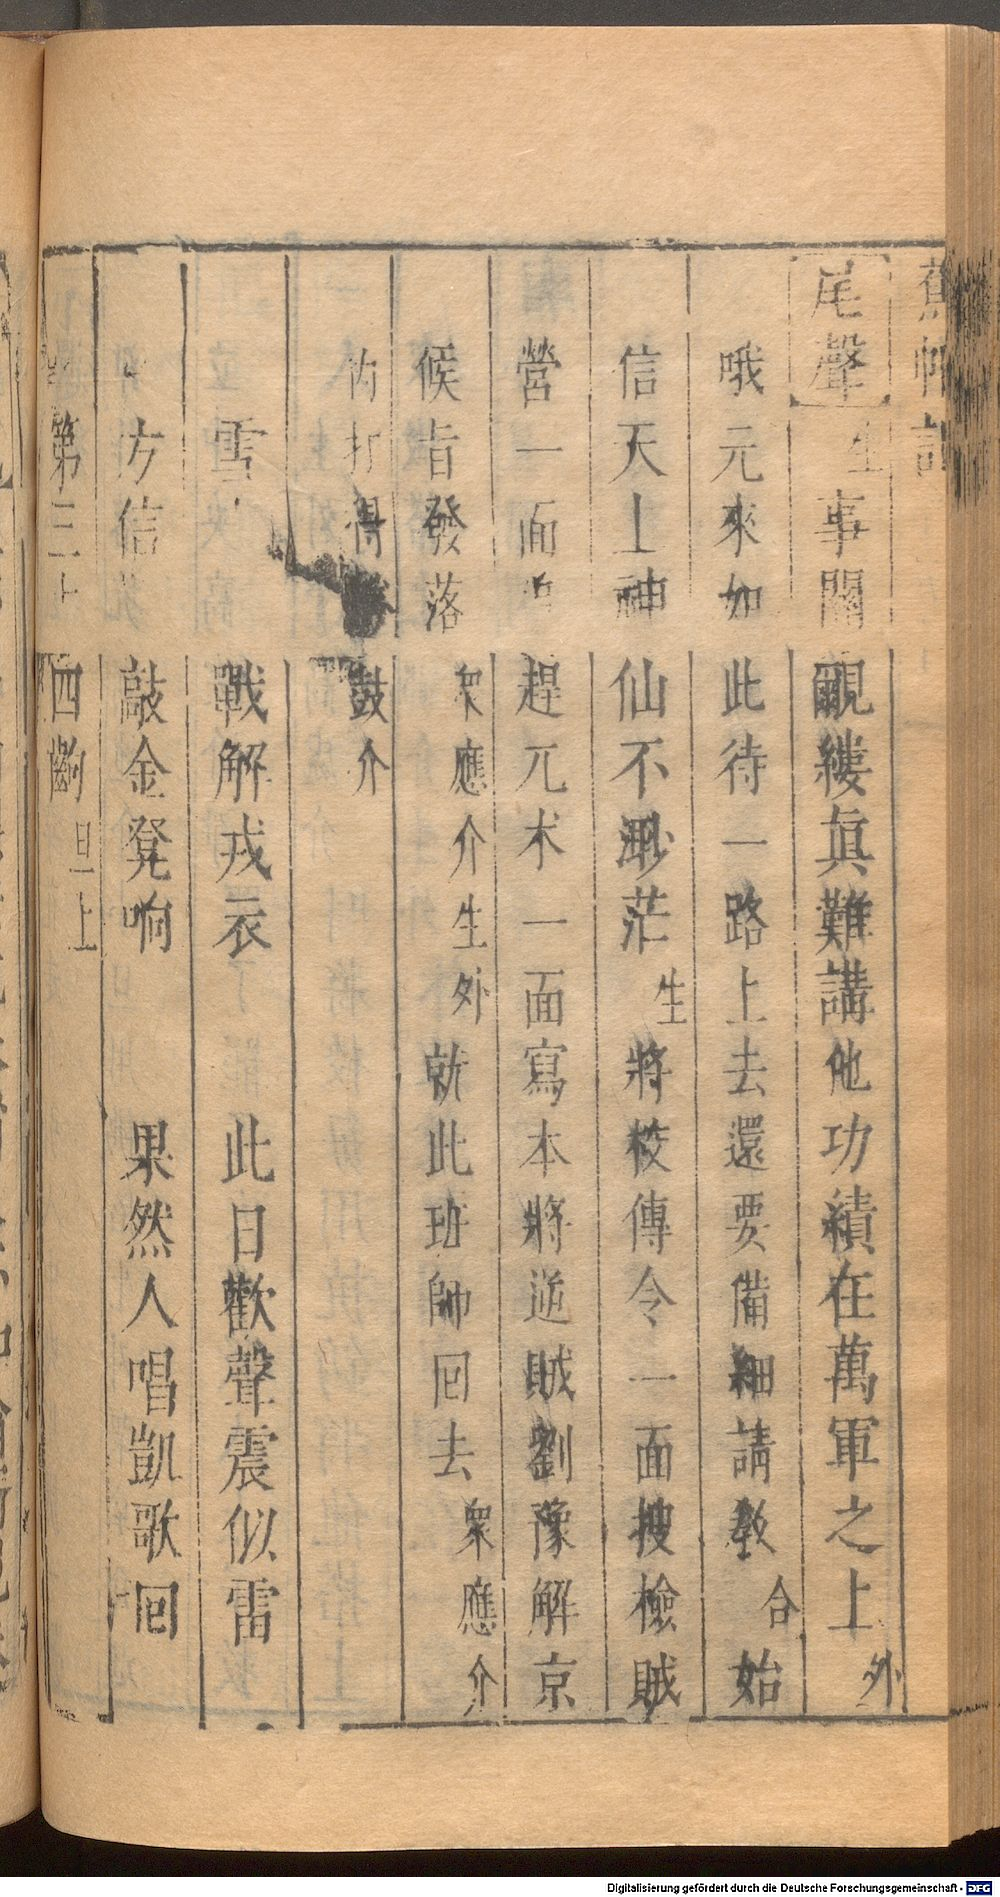 蕉帕記
尾聲 生 事關覼縷眞難講他功績在萬軍之上 外
哦元來如此待一路上去還要備細請敎 合 始
信天上神仙不渺茫 生 將校傳令一面搜檢賊
營一面 趕兀术一面寫本將逆賊劉豫解京
候旨發落 衆應介生外 就此班師回去 衆應介
内打得 鼓介
雪 戰解戎衣 此日歡聲震似雷
方信 敲金凳响 果然人唱凱歌回
第三十四齣 旦上
Digitalisierung gefördert durch die Deutsche Forschungsgemeinschaft - DFG